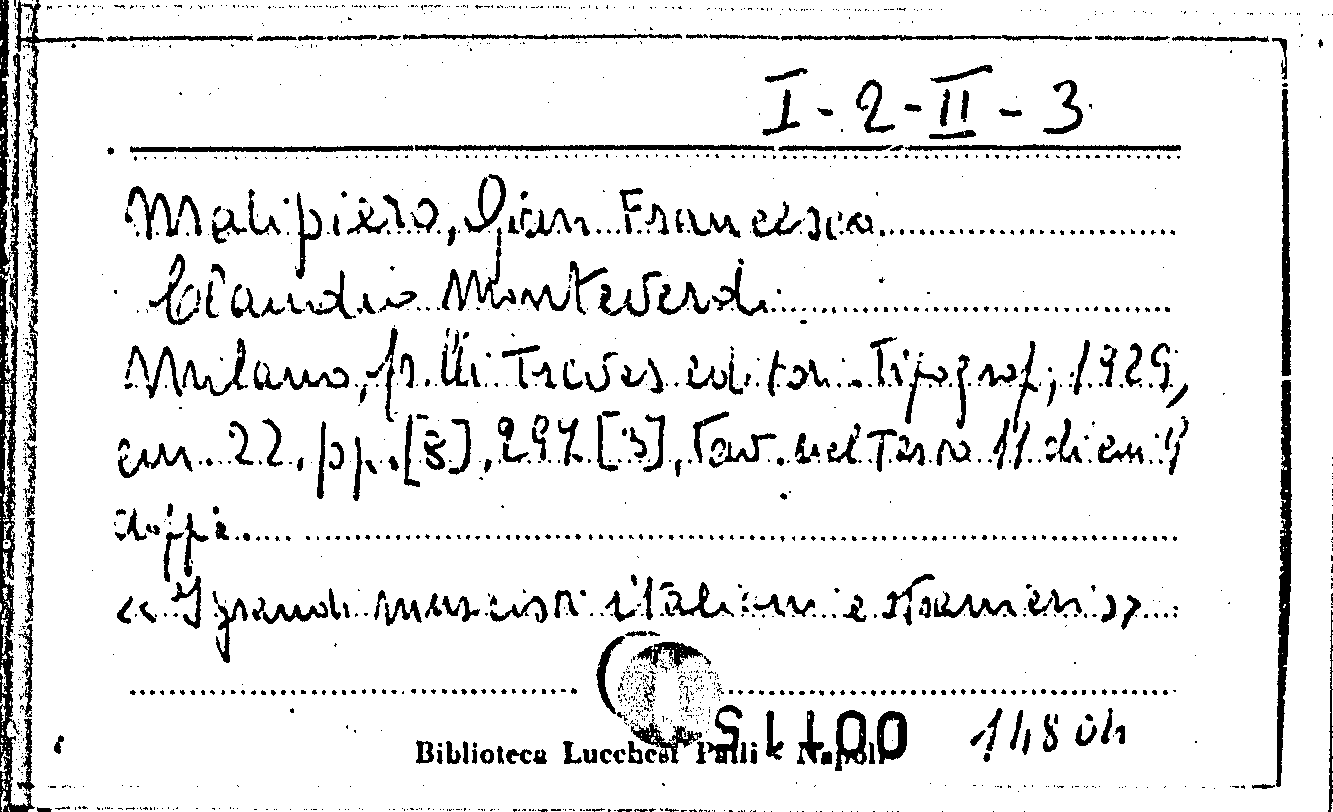 I-2-II-3
Malipiero, Gian Francesco
Claudio Monteverdi
Milano, f.lli Treves editori. Tipograf, 1929,
cm. 22, pp. [8], 297 [3], Tav. nel Testo 11 di cui 9
doppie.
<< I grandi musicisti italiani e stranieri >>
Biblioteca Lucchesi Palli - Napoli
14804